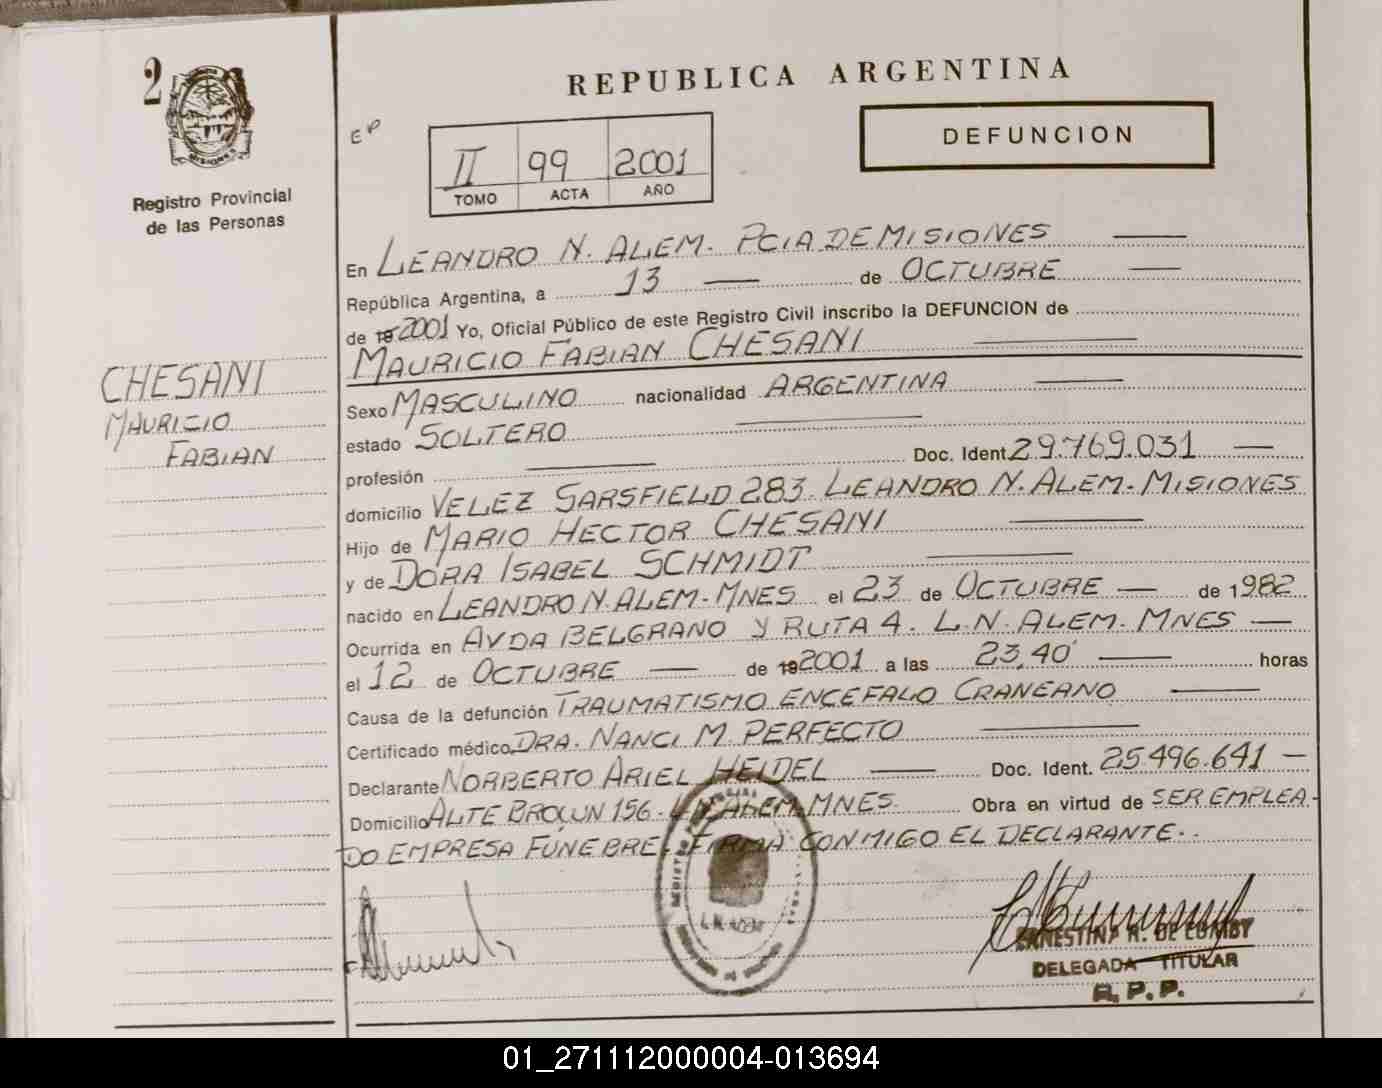 2
Registro Provincial
de las Personas
CHESANI
MAURICIO
FABIAN
REPUBLICA ARGENTINA
EP
DEFUNCION
II 99 2001
TOMO ACTA AÑO
En LEANDRO N. ALEM. PCIA DE MISIONES
República Argentina, a 13 de OCTUBRE
de 19 2001 Yo, Oficial Público de este Registro Civil inscribo la DEFUNCION de
MAURICIO FABIAN CHESANI
Sexo MASCULINO nacionalidad ARGENTINA
estado SOLTERO
profesión Doc. Ident. 29.769.031
domicilio VELEZ SARSFIELD 283. LEANDRO N. ALEM. MISIONES
Hijo de MARIO HECTOR CHESANI
y de DORA ISABEL SCHMIDT
nacido en LEANDRO N. ALEM-MNES el 23 de OCTUBRE de 1982
Ocurrida en AVDA BELGRANO Y RUTA 4. L.N. ALEM. MNES
el 12 de OCTUBRE de 19 2001 a las 23,40' horas
Causa de la defunción TRAUMATISMO ENCEFALO CRANEANO
Certificado médico DRA. NANCI M. PERFECTO
Declarante NORBERTO ARIEL HEIDEL Doc. Ident. 25.496.641
Domicilio ALTE BROWN 156. L.N. ALEM. MNES. Obra en virtud de SER EMPLEA-
DO EMPRESA FÚNEBRE. FIRMA CONMIGO EL DECLARANTE.
ERNESTINA R. DE
DELEGADA TITULAR
R.P.P.
01_271112000004-013694